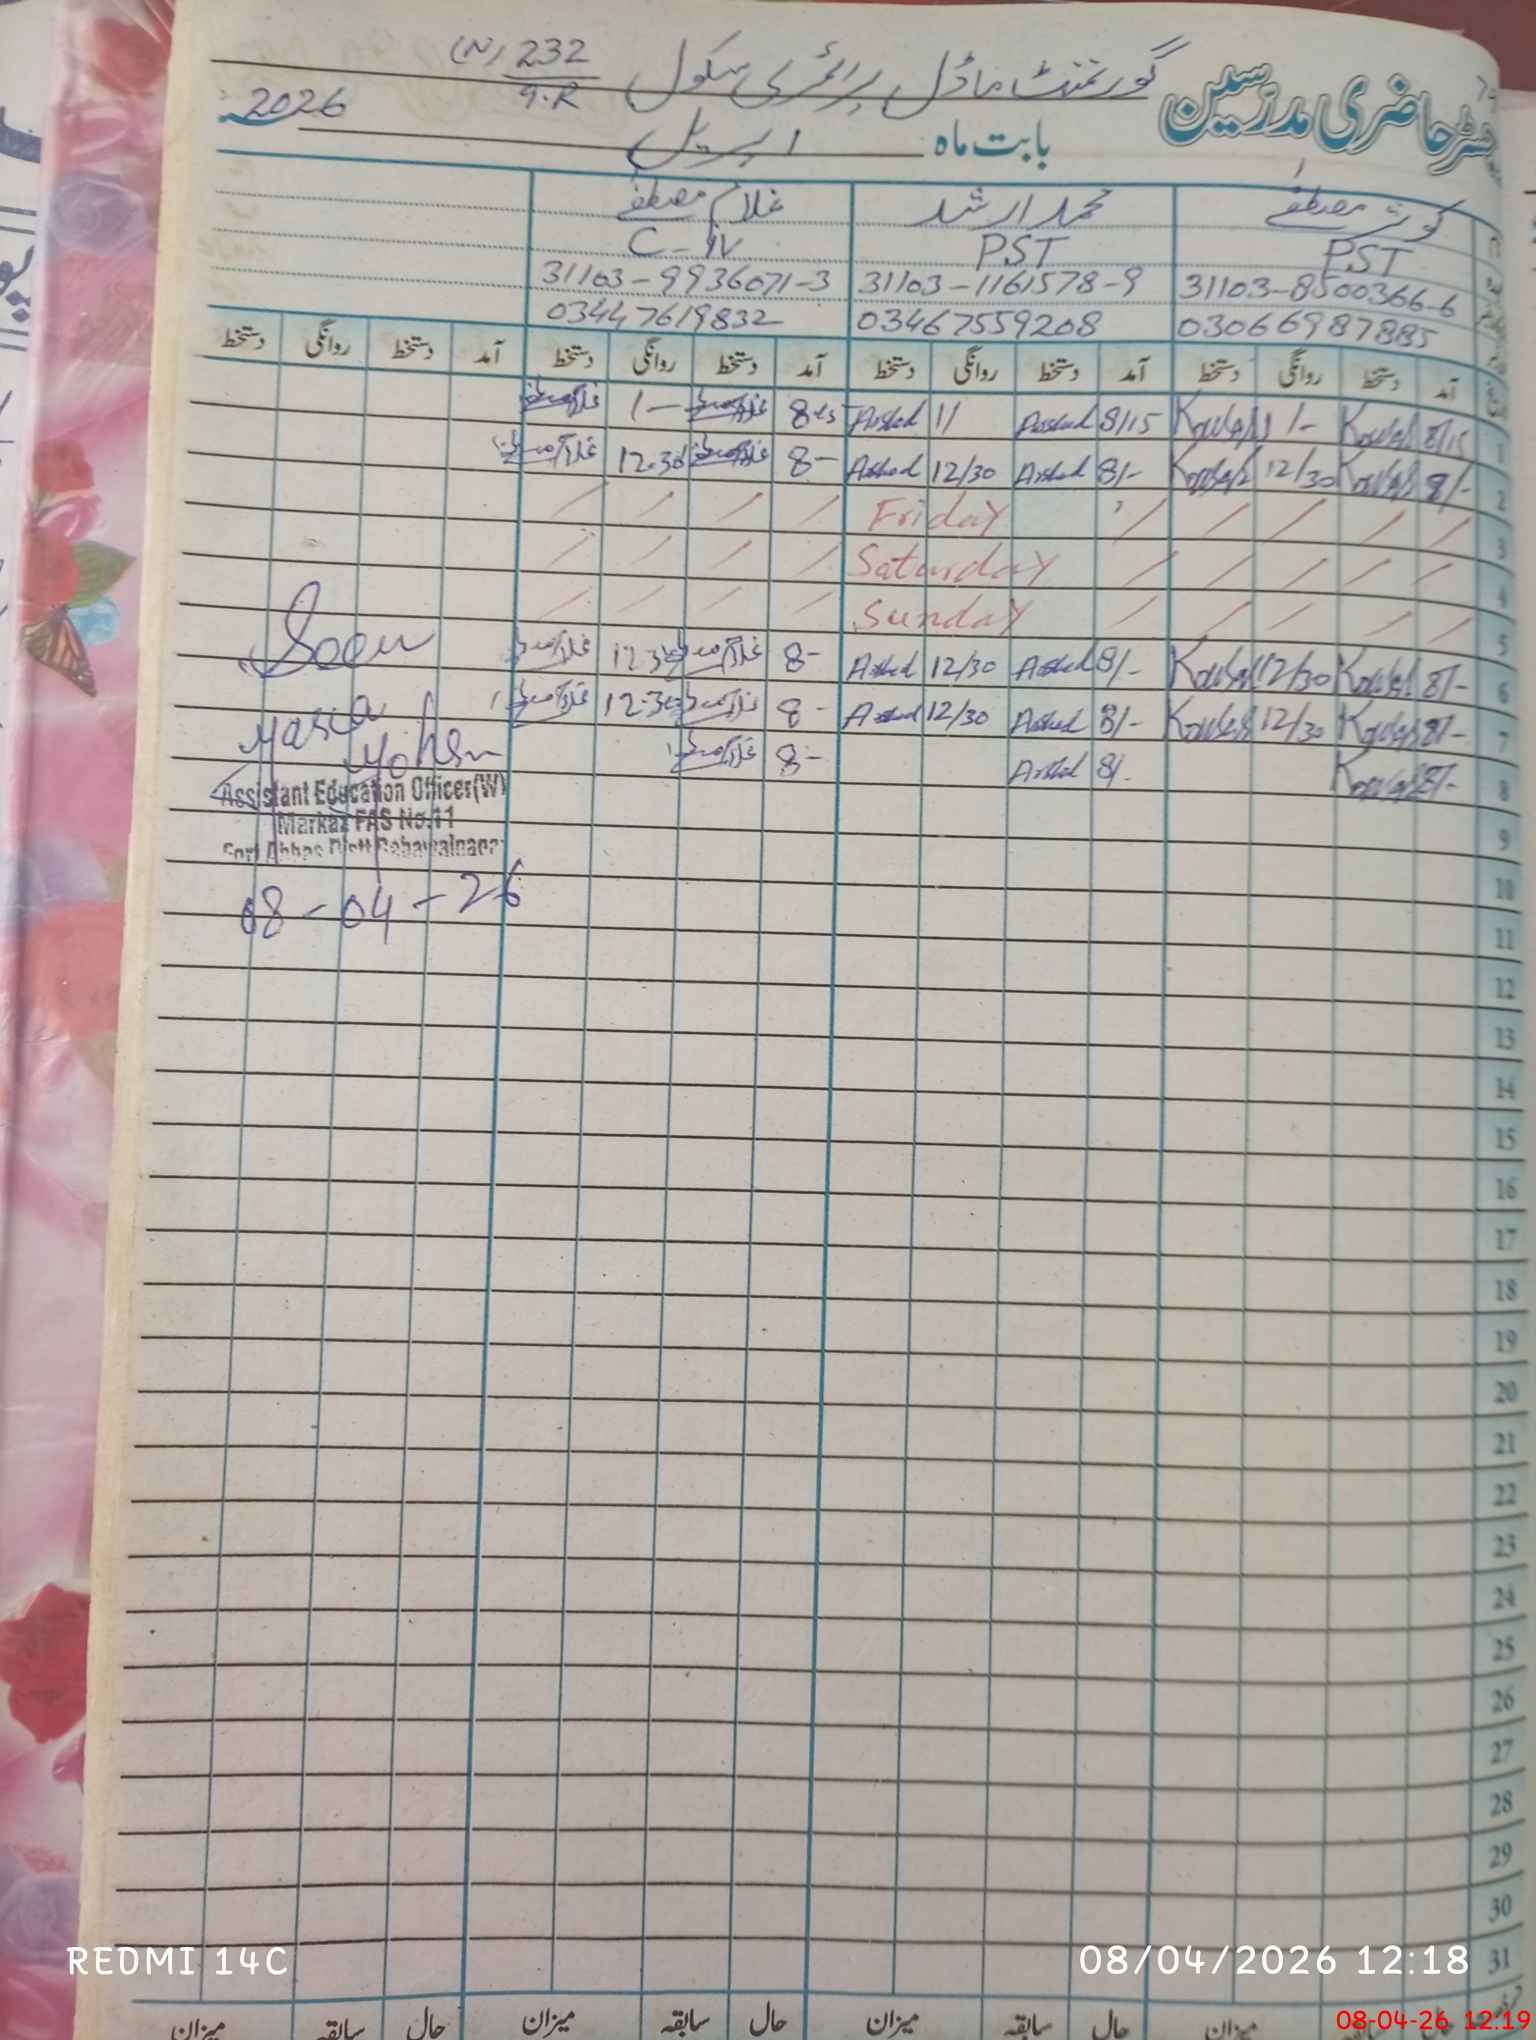 رجسٹر حاضری مدرسین گورنمنٹ ماڈل پرائمری سکول 232/9.R (N)
بابت ماہ اپریل 2026
کوثر مصطفےٰ محمد ارشد غلام مصطفےٰ
PST PST C-iv
31103-8500366-6 31103-1161578-9 31103-9936071-3
03066987885 03467559208 03447619832
آمد دستخط روانگی دستخط آمد دستخط روانگی دستخط آمد دستخط روانگی دستخط آمد دستخط روانگی دستخط
1 8/15 Kousar 1/- Kousar 8/15 Arshad 1/ Arshad 8 15 غلام مصطفےٰ 1- غلام مصطفےٰ
2 8/- Kousar 12/30 Kousar 8/- Arshad 12/30 Arshad 8- غلام مصطفےٰ 12.30 غلام مصطفےٰ
3 Friday
4 Saturday
5 Sunday
6 8/- Kousar 12/30 Kousar 8/- Arshad 12/30 Arshad 8- غلام مصطفےٰ 12.30 غلام مصطفےٰ
7 8/- Kousar 12/30 Kousar 8/- Arshad 12/30 Arshad 8- غلام مصطفےٰ 12.30 غلام مصطفےٰ
8 8/- Kousar 8/- Arshad 8- غلام مصطفےٰ
Seen
Mohsin
Assistant Education Officer(W)
Markaz FAS No.11
Fort Abbas Distt Bahawalnagar
08-04-26
9
10
11
12
13
14
15
16
17
18
19
20
21
22
23
24
25
26
27
28
29
30
31
حال سابقہ میزان حال سابقہ میزان حال سابقہ میزان
REDMI 14C
08/04/2026 12:18
08-04-26 12:19